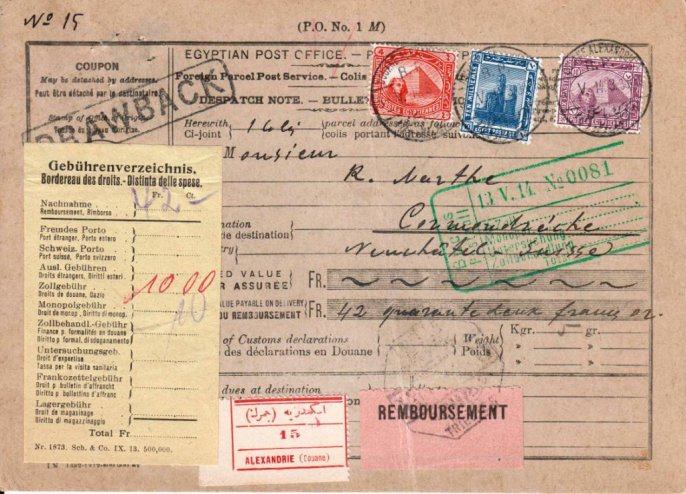 No 15
(P.O. No. 1 M)
COUPON
May be detached by addressee.
Peut être détaché par le destinataire
DRAWBACK
EGYPTIAN POST OFFICE.
Foreign Parcel Post Service. — Colis
DESPATCH NOTE. — BULLE
Herewith, parcel addressed as follows
Ci-joint 1 colis colis portant l'adresse suivante
Monsieur
R. Marthe
Cormondrèche
Neuchâtel Suisse
nation
de destination
13 V. 14 No 0081
ED VALUE
R ASSURÉE
FR.
VALUE PAYABLE ON DELIVERY
DU REMBOURSEMENT
FR.
42 quarante deux francs or.
Kgr. 5 gr.
of Customs declarations
des déclarations en Douane
Weight
Poids
dues at destination
Gebührenverzeichnis.
Bordereau des droits. - Distinta delle spese.
Fr. Ct.
Nachnahme
42-
Remboursement, Rimborso
Fremdes Porto
Port étranger, Porto estero
Schweiz. Porto
Port suisse, Porto svizzero
Ausl. Gebühren
Droits étrangers, Diritti esteri
Zollgebühr
1000
Droits de douane, Dazio
Monopolgebühr
10
Droit de monop., Diritto di monop.
Zollbehandl.-Gebühr
Finance p. formalités en douane
Diritto p. formal. di sdoganamento
Untersuchungsgeb.
Droit d'expertise
Tassa per la visita sanitaria
Frankozettelgebühr
Droit p. bulletin d'affrancht
Diritto p. bollettino d'affranc
Lagergebühr
Droit de magasinage
Diritto di magazzinaggio
Total Fr.
Nr. 1873. Sch. & Co. IX. 13. 500,000.
اسكندرية (جمرك)
15
ALEXANDRIE (Douane)
REMBOURSEMENT